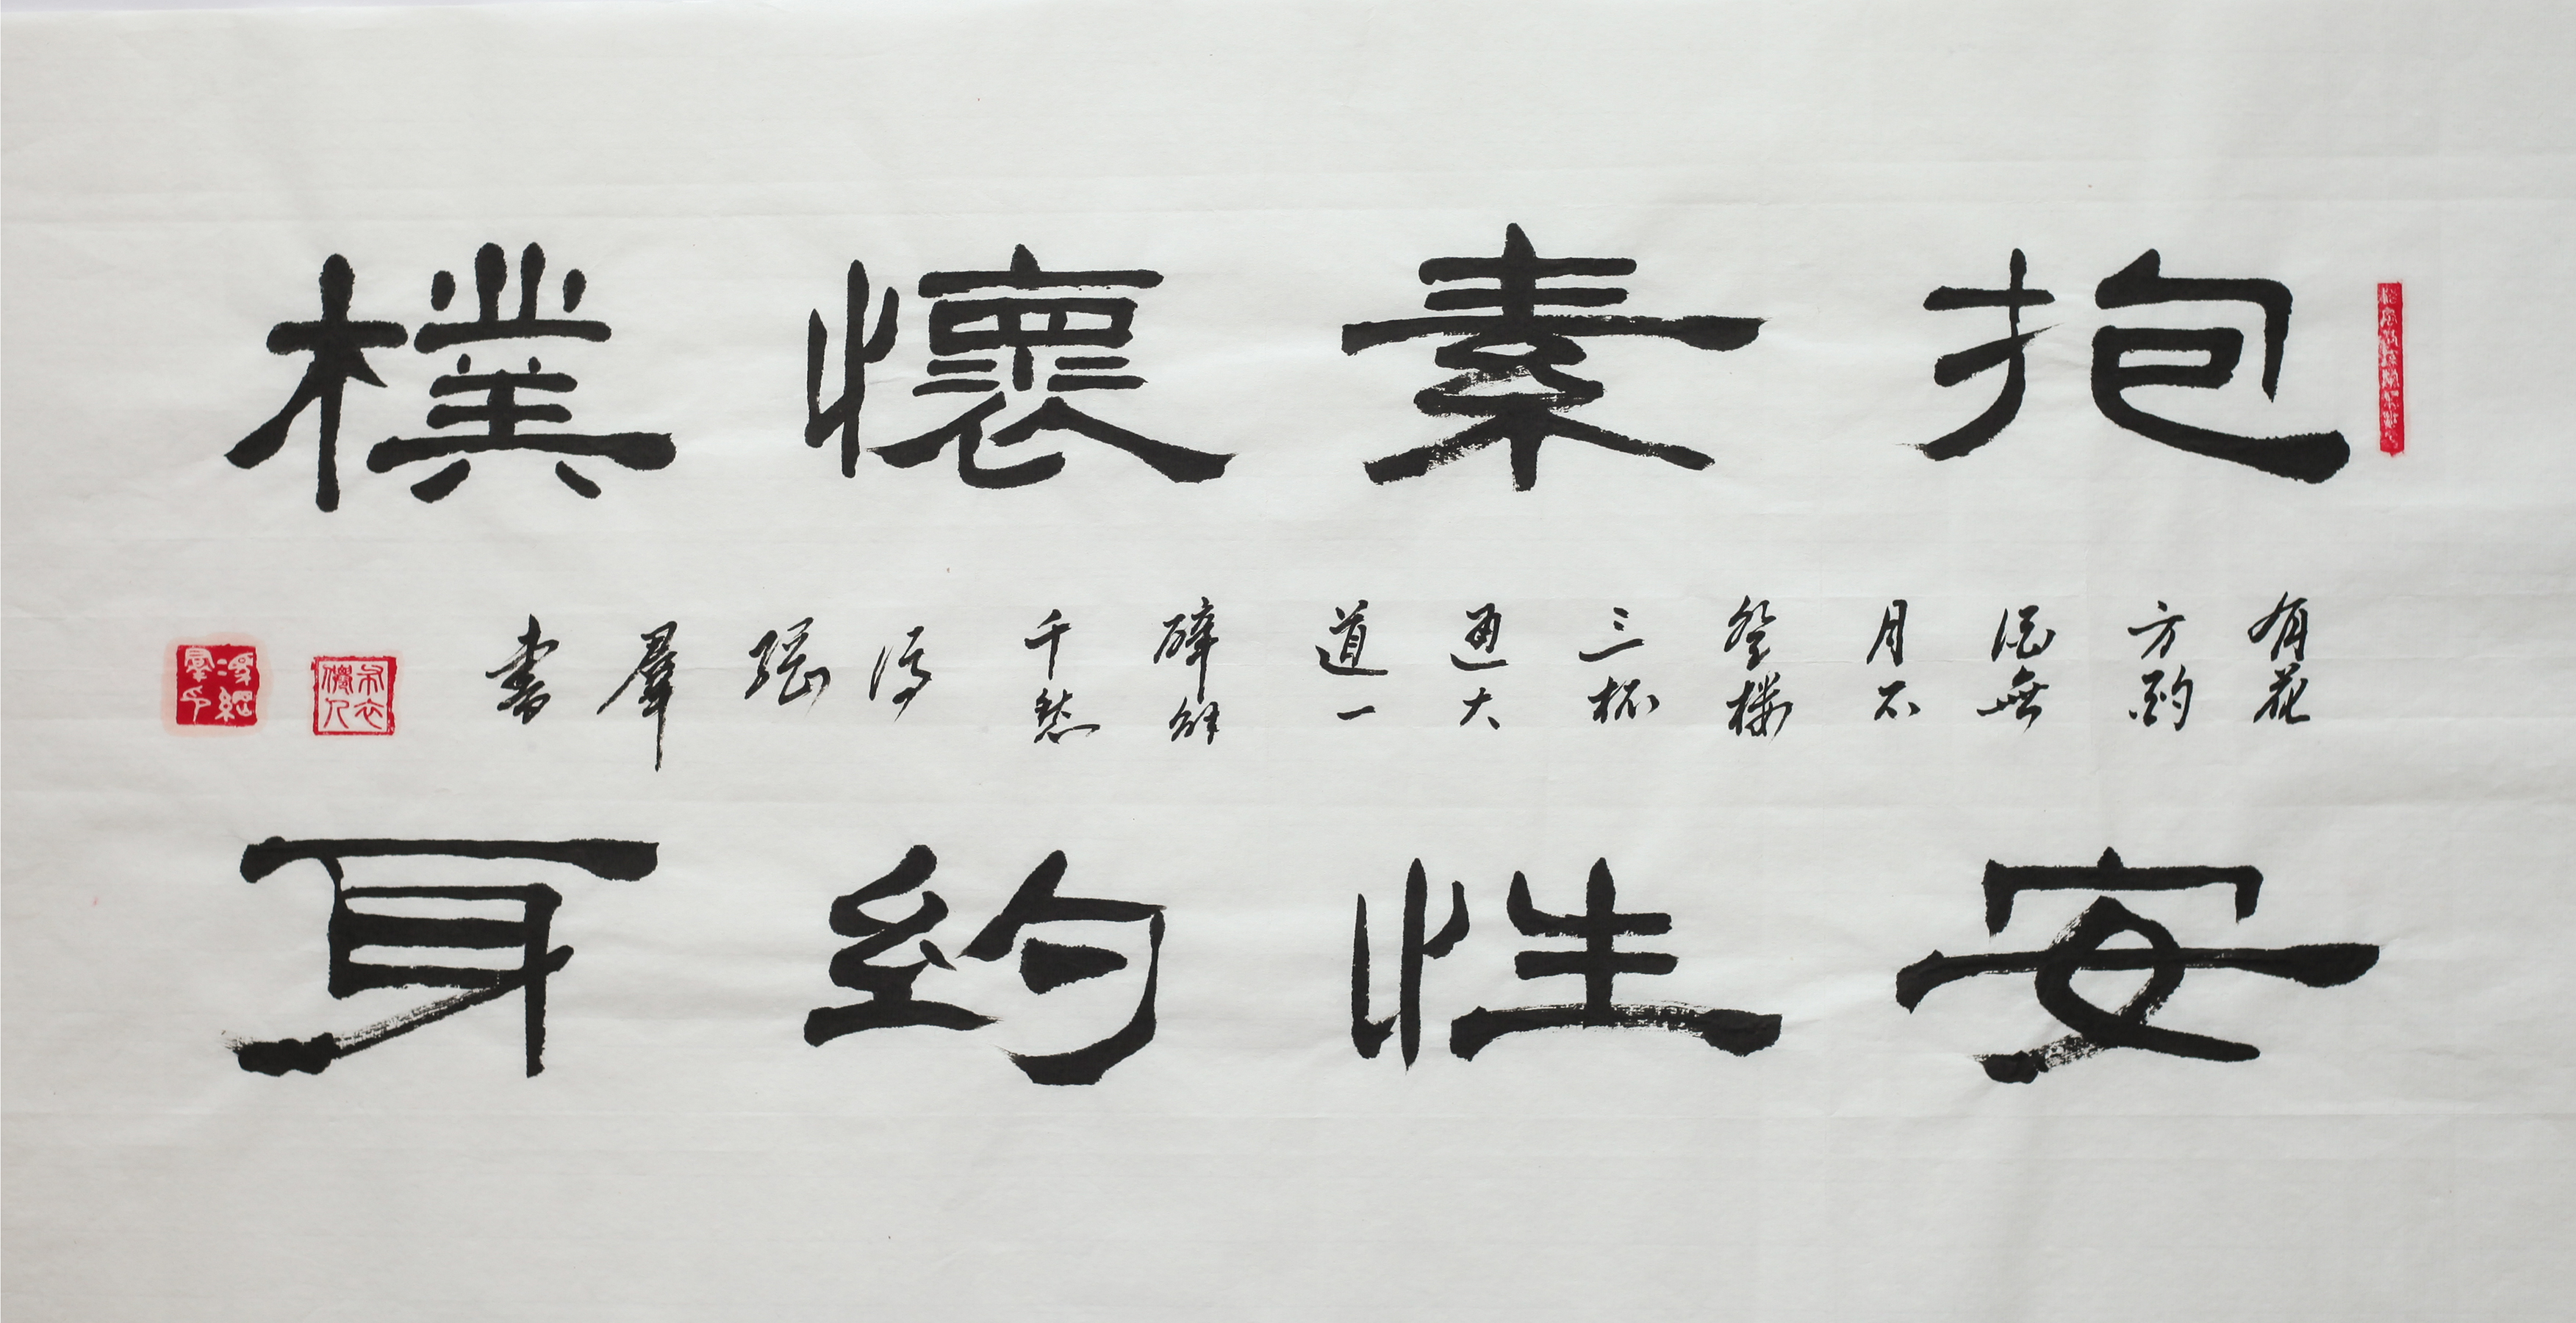 抱素懷樸
有花方酌酒無月不登樓三杯通大道一醉解千愁
羣書
安性約身